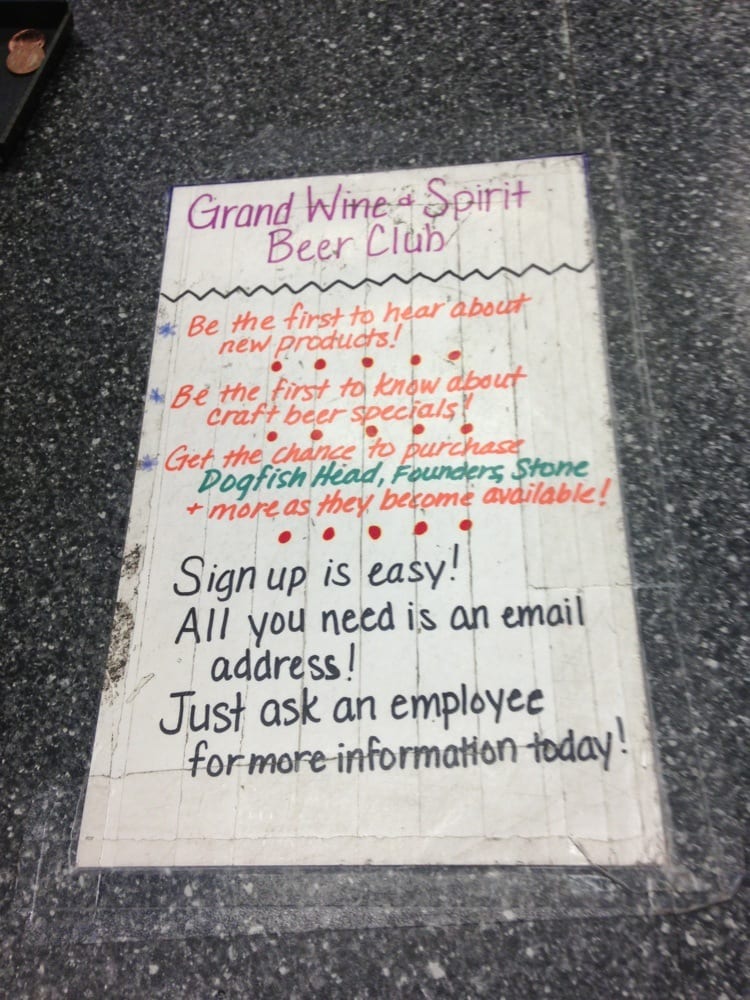 Grand Wine & Spirit
Beer Club
* Be the first to hear about
new products!
* Be the first to know about
craft beer specials!
* Get the chance to purchase
Dogfish Head, Founders, Stone
+ more as they become available!
Sign up is easy!
All you need is an email
address!
Just ask an employee
for more information today!